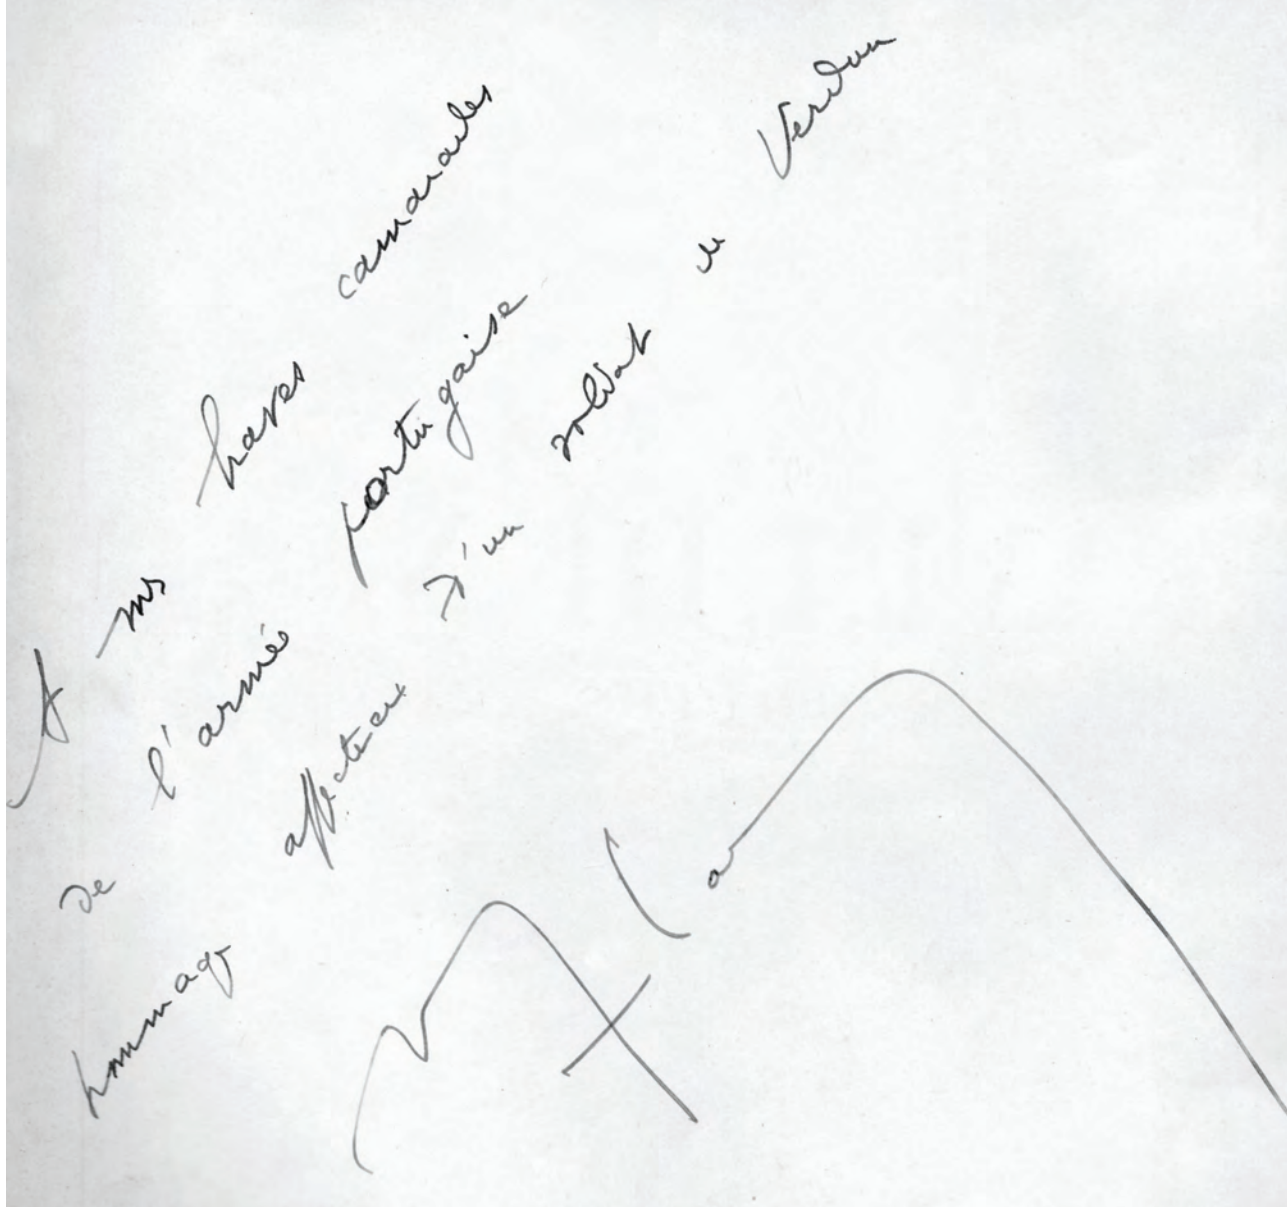 A mes braves camarades
de l'armée portugaise
hommage affectueux d'un soldat de Verdun